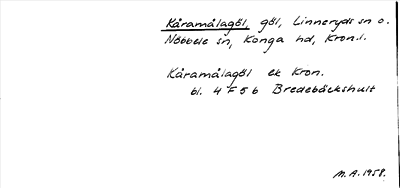 Kåramålagöl, göl, Linneryds sn o.
Nöbbele sn, Konga hd, Kron.l.
Kåramålagöl ek Kron.
bl. 4 F 5 b Bredebäckshult
M.A. 1958.